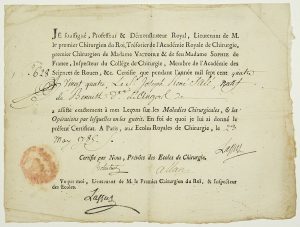 JE soussigné, Professeur & Démonstrateur Royal, Lieutenant de M.
le premier Chirurgien du Roi, Trésorier de l'Académie Royale de Chirurgie,
premier Chirurgien de Madame VICTOIRE & de feu Madame SOPHIE de
France, Inspecteur du Collége de Chirurgie, Membre de l'Académie des
Sciences de Rouen, &c. Certifie que pendant l'année mil sept cent quatre
Vingt quatre, Le Sr. Joseph natif
de Diocèse
a assisté exactement à mes Leçons sur les Maladies Chirurgicales, & les
Opérations par lesquelles on les guérit. En foi de quoi je lui ai donné le
présent Certificat. A Paris, aux Ecoles Royales de Chirurgie, ce 23
Lassus
Certifié par Nous, Prévôts des Ecoles de Chirurgie.
Vu par moi, Lieutenant de M. le Premier Chirurgien du Roi, & Inspecteur
des Ecoles.
Lassus